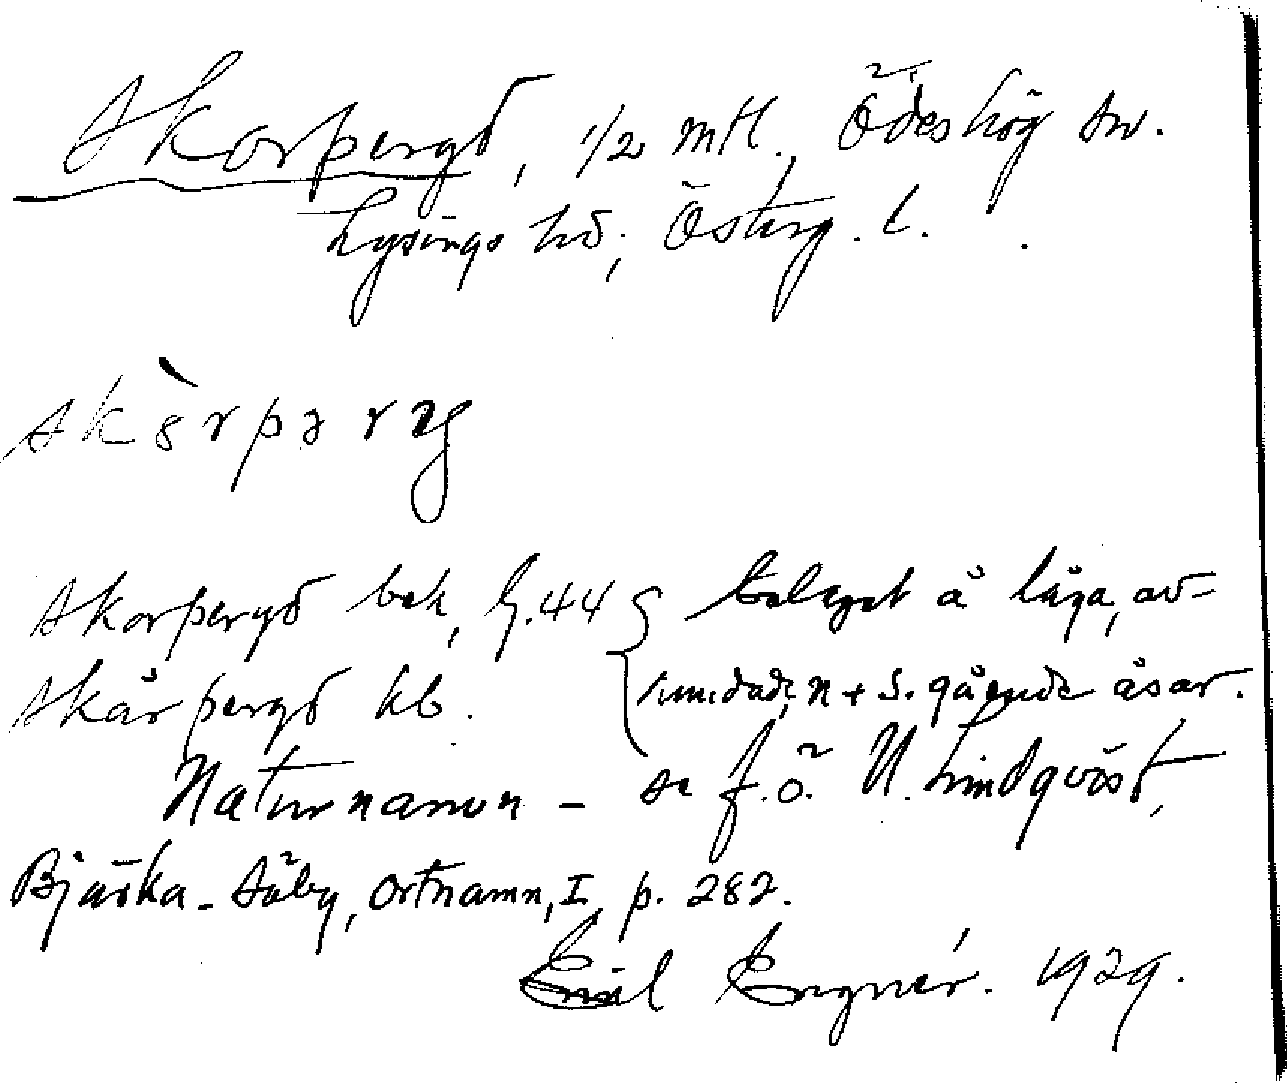 Skorpergd, 1/2 mtl., Ödeshög sn.
Lysings hd, Österg. l.
skèrpərg
Skorpergd bek, G. 44 { beläget å låga, av-
Skårpergd kb. { rundade, n + s. gående åsar.
Naturnamn - se f.ö. N. Lindqvist,
Bjärka-Säby, ortnamn, I p. 282.
Emil Engnér. 1929.